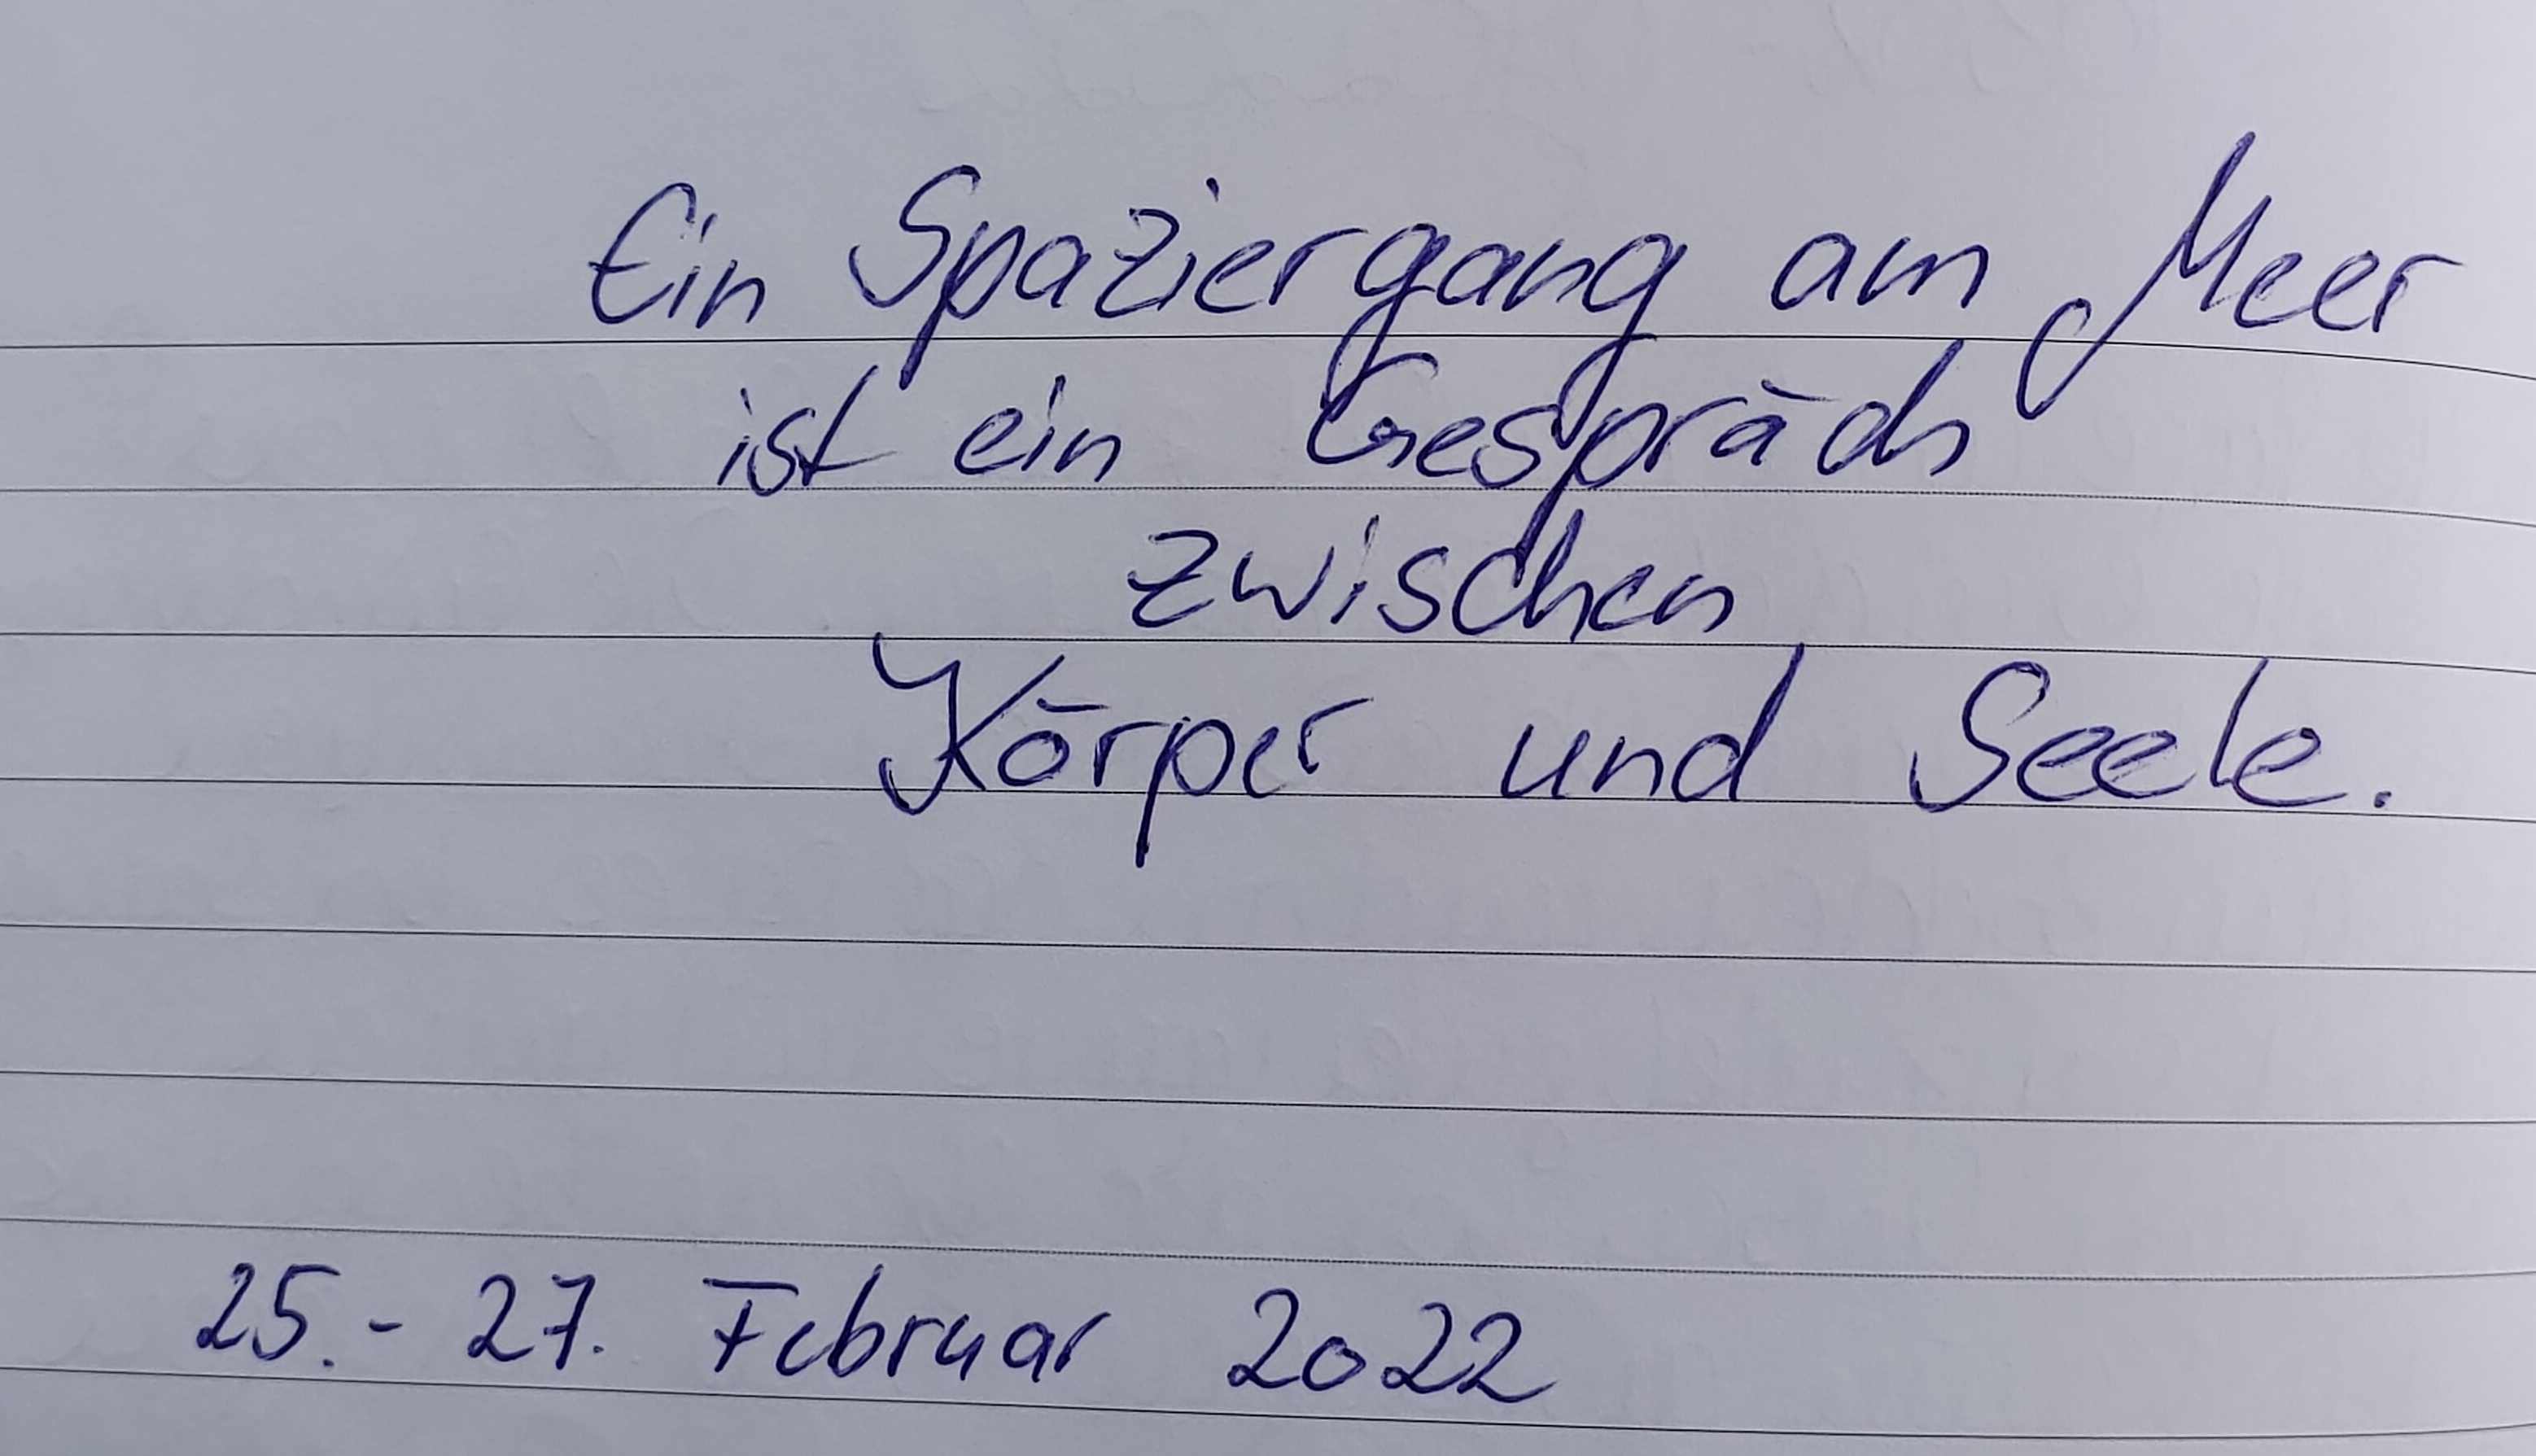 Ein Spaziergang am Meer
ist ein Gespräch
zwischen
Körper und Seele.
25.- 27. Februar 2022